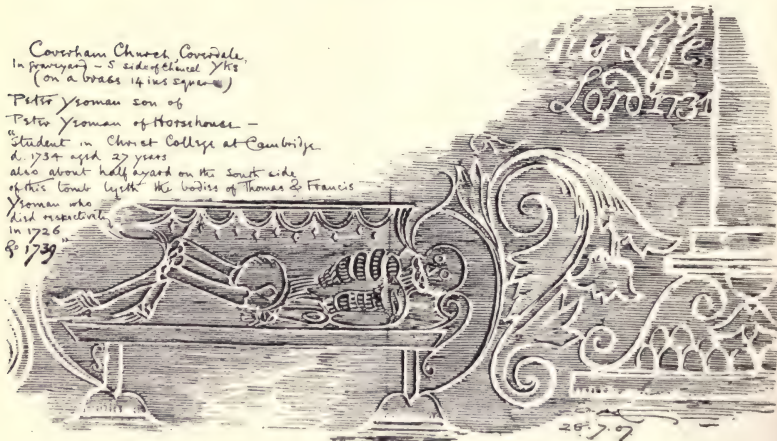 Coverham Church, Coverdale,
In graveyard - S side of Chancel Yks
(on a brass 14 ins square)
Peter Yeoman son of
Peter Yeoman of Horsehouse -
"Student in Christ College at Cambridge
d. 1734 aged 27 years
also about half a yard on the South side
of this tomb lyeth the bodies of Thomas & Francis
Yeoman who
died respectively
in 1726
& 1739"
his Life
Lord 1734
28.7.07